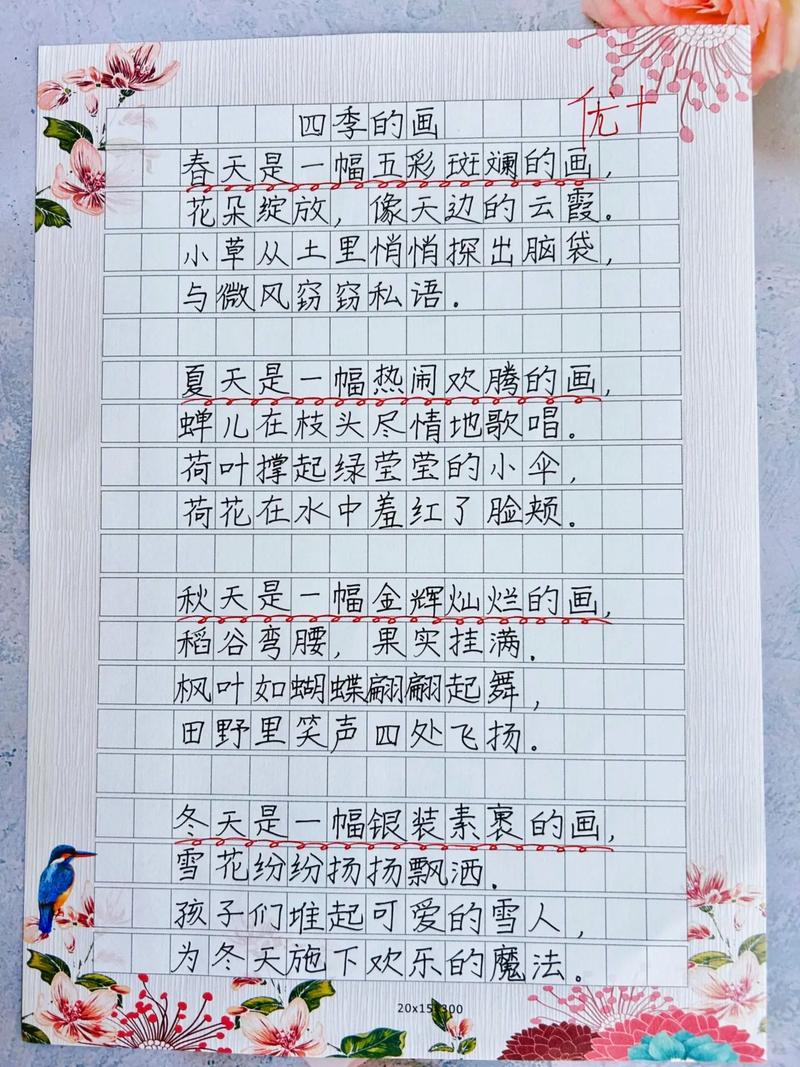 四季的画
优+
春天是一幅五彩斑斓的画，
花朵绽放，像天边的云霞。
小草从土里悄悄探出脑袋，
与微风窃窃私语.
夏天是一幅热闹欢腾的画，
蝉儿在枝头尽情地歌唱。
荷叶撑起绿莹莹的小伞，
荷花在水中羞红了脸颊.
秋天是一幅金辉灿烂的画，
稻谷弯腰，果实挂满.
枫叶如蝴蝶翩翩起舞，
田野里笑声四处飞扬.
冬天是一幅银装素裹的画，
雪花纷纷扬扬飘洒.
孩子们堆起可爱的雪人，
为冬天施下欢乐的魔法。
20x15=300